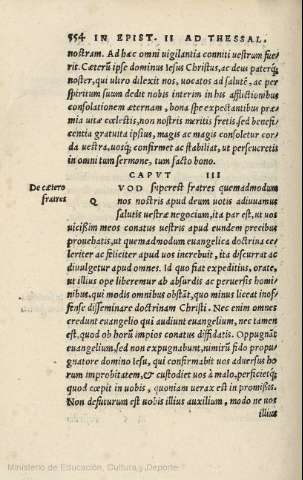 554 IN EPIST. II AD THESSAL.
nostram. Ad hæc omni uigilantia conniti uestrum fue
rit. Cæterũ ipse dominus Iesus Christus, ac deus paterq́;
noster, qui ultro dilexit nos, uocatos ad salutẽ, ac per
spiritum suum dedit nobis interim in his afflictionibus
consolationem æternam, bona spe expectantibus præ
mia uitæ cœlestis, non nostris meritis fretis, sed benefi
centia gratuita ipsius, magis ac magis consoletur cor
da uestra, uosq́; confirmet ac stabiliat, ut perseueretis
in omni tum sermone, tum facto bono.
CAPVT III
De cætero
fratres
QVOD superest fratres quemadmodum
nos nostris apud deum uotis adiuuamus
salutis uestræ negocium, ita par est, ut uos
uicißim meos conatus uestris apud eundem precibus
prouehatis, ut quemadmodum euangelica doctrina ce
leriter ac feliciter apud uos increbuit, ita discurrat ac
diuulgetur apud omnes. Id quo fiat expeditius, orate,
ut illius ope liberemur ab absurdis ac peruersis homi
nibus, qui modis omnibus obstãt, quo minus liceat inof
fense disseminare doctrinam Christi. Nec enim omnes
credunt euangelio qui audiunt euangelium, nec tamen
est, quod ob horũ impios conatus diffidatis. Oppugnãt
euangelium, sed non expugnabunt, nimirũ fido propu
gnatore domino Iesu, qui confirmabit uos aduersus ho
rum improbitatem, & custodiet uos à malo, perficietq́;
quod cœpit in uobis, quoniam uerax est in promißis.
Non defuturum est uobis illius auxilium, modo ne uos
illius
Ministerio de Educación, Cultura y Deporte